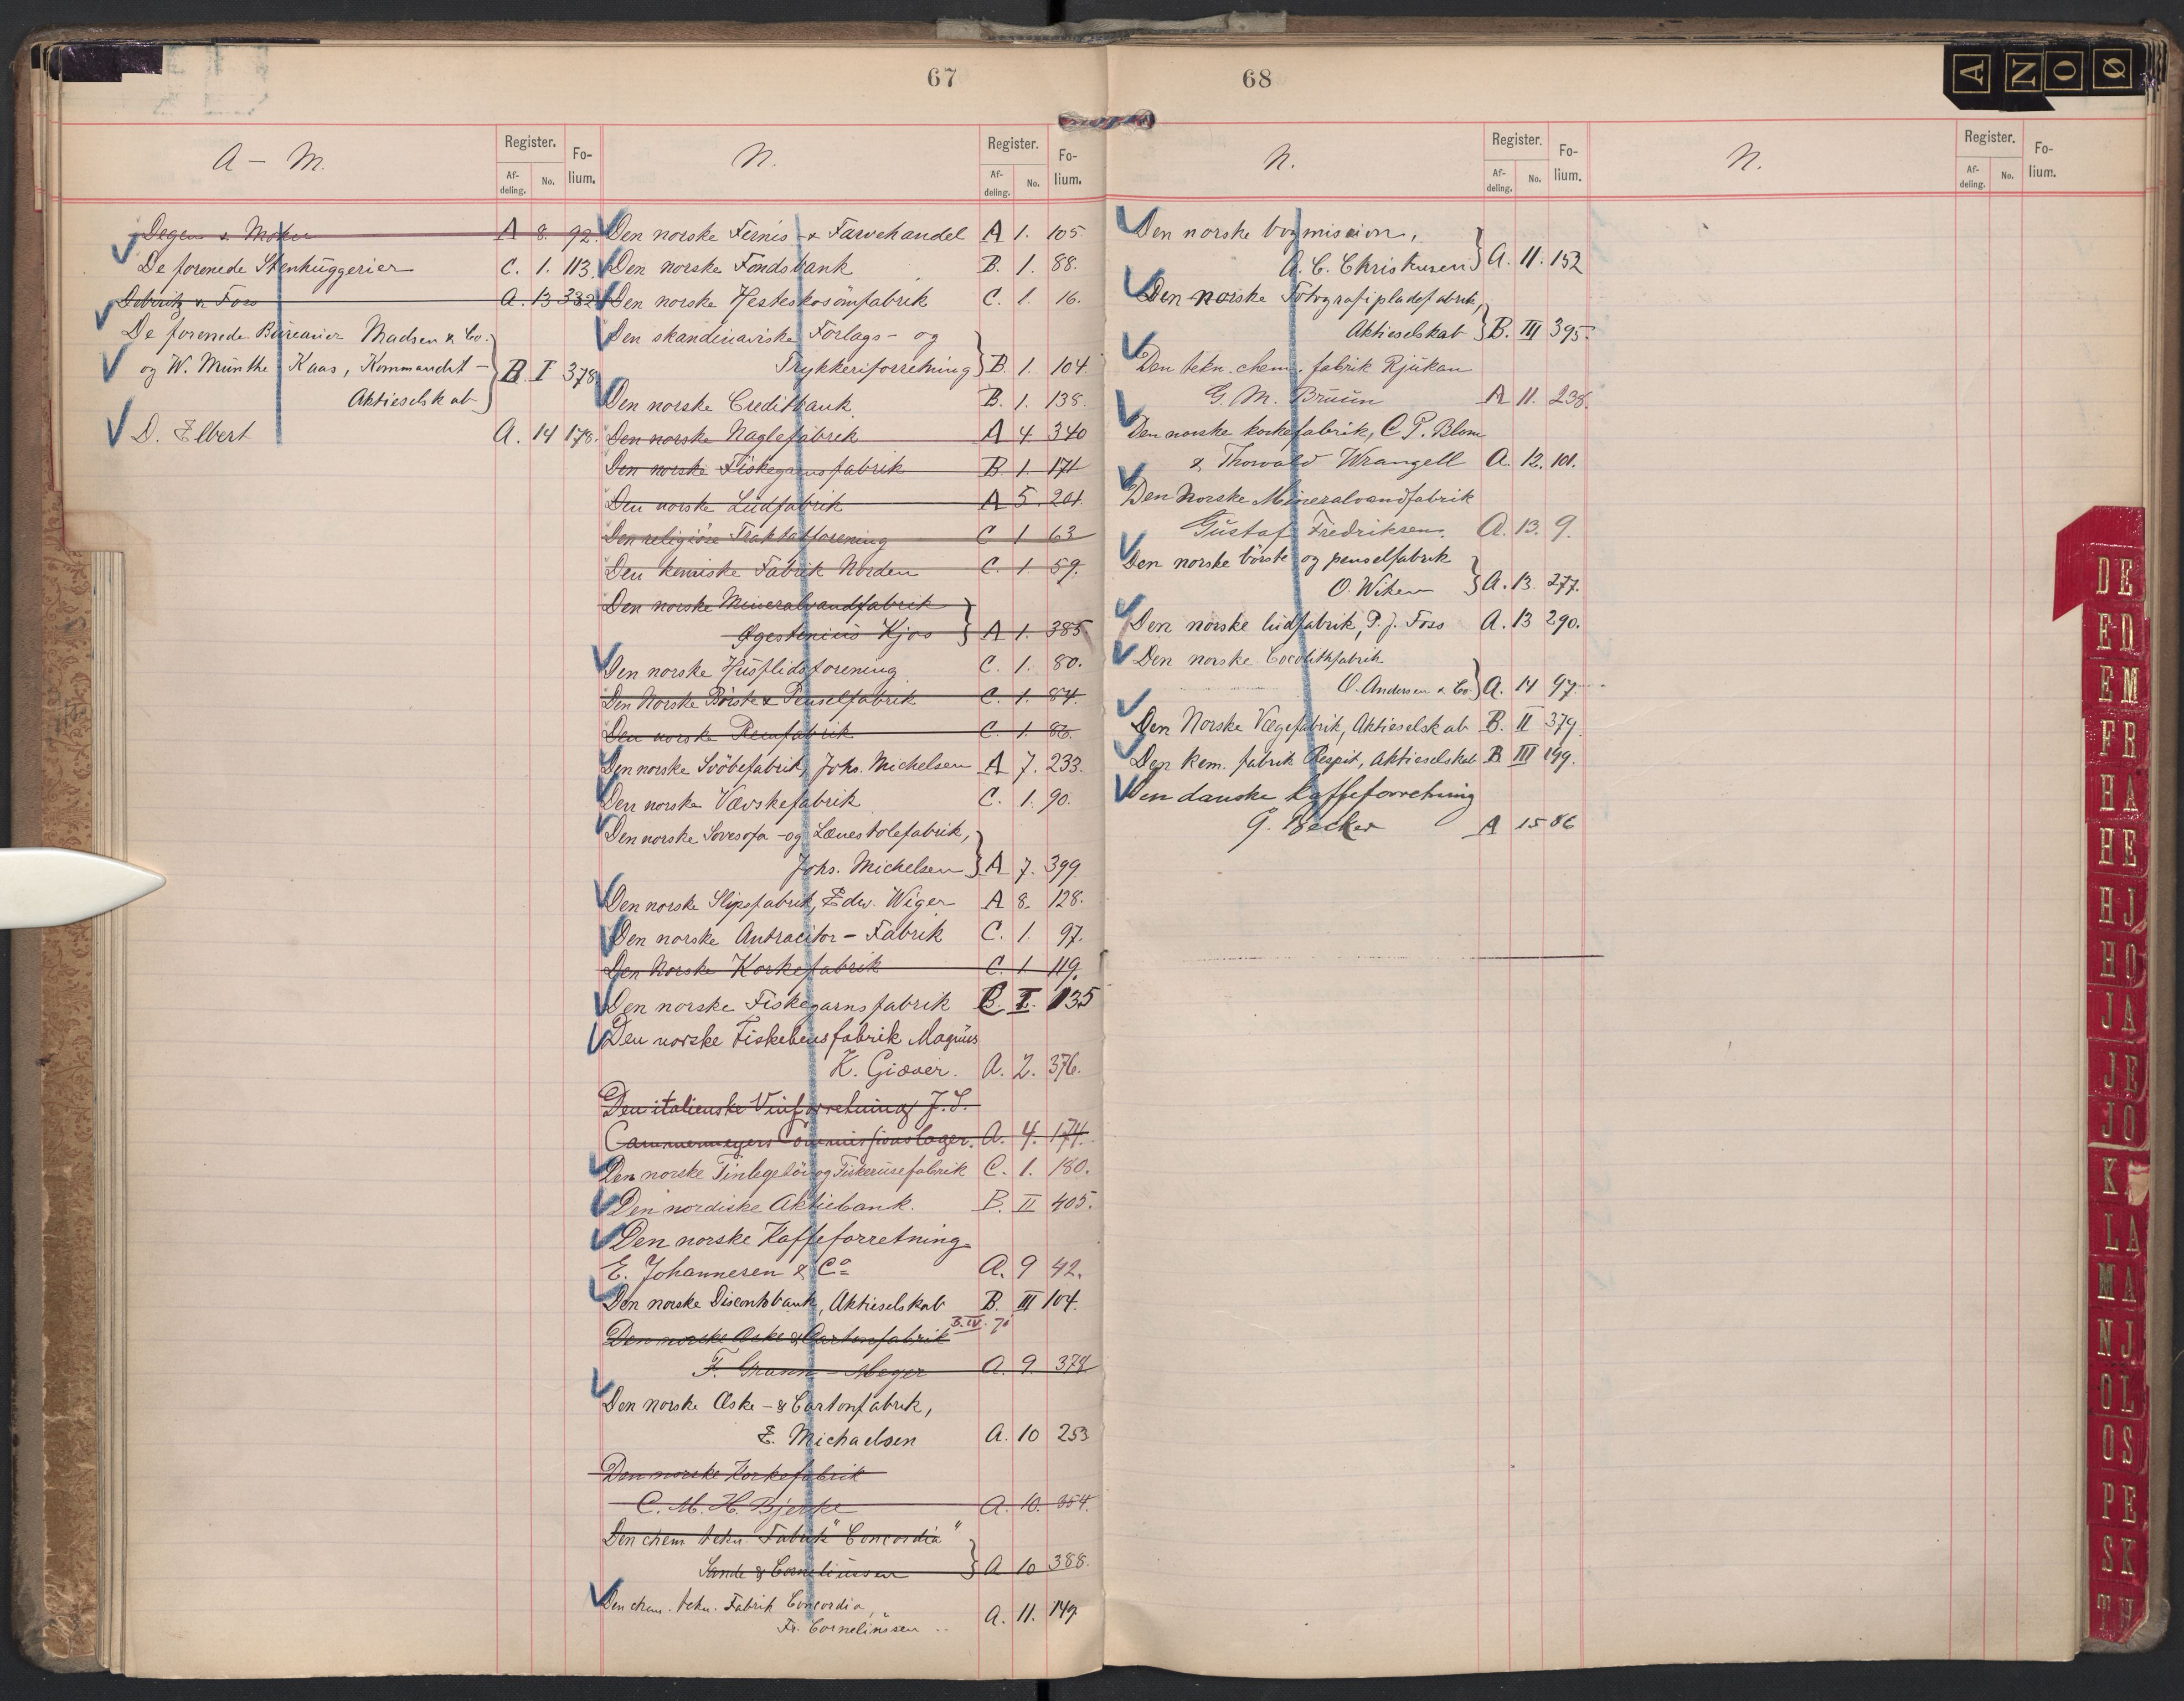 67
A – M.
Register.
Af-
deling.
No.
Fo-
lium.
Degen & Moken A 8. 92.
De forenede Stenhuggerier C. 1. 113.
Deberitz & Foss A. 13 382
De forenede Bureauer Madsen & Co.
og W. Munthe Kaas, Kommandit-
Aktieselskab B I 378
D. Elbert A. 14 178.
N.
Register.
Af-
deling.
No.
Fo-
lium.
Den norske Fernis- & Farvehandel A 1. 105.
Den norske Fondsbank B. 1. 88.
Den norske Hesteskosömfabrik C. 1. 16.
Den skandinaviske Forlags- og
Trykkeriforretning B. 1. 104
Den norske Creditbank. B. 1. 138.
Den norske Naglefabrik A 4 340
Den norske Fiskegarnsfabrik B 1. 171
Den norske Ludfabrik A 5. 201.
Den religiöse Traktatforening C 1 63
Den kemiske Fabrik Norden C. 1. 59.
Den norske Mineralvandfabrik
Kjos A 1. 385
Den norske Husflidsforening C. 1. 80.
Den Norske Börste & Penselfabrik C. 1. 84.
Den norske Remfabrik C. 1. 86.
Den norske Svöbefabrik, Johs. Michelsen A 7. 233.
Den norske Vævskefabrik C. 1. 90.
Den norske Sovesofa- og Lænestolefabrik,
Johs. Michelsen A 7. 399.
Den norske Slipsfabrik, Edw. Wiger A 8. 128.
Den norske Antracitor-Fabrik C. 1. 97.
Den Norske Korkefabrik C. 1. 119.
Den norske Fiskegarnsfabrik B. I. 135
Den norske Fiskebensfabrik Magnus
K. Giæver. A. 2. 376.
Den italienske Vinforretning J. S.
Cammermeyers Commissionslager. A. 4. 174.
Den norske Tinlegetöi og Fiskerusefabrik C. 1. 180.
Den nordiske Aktiebank. B. II 405.
Den norske Kaffeforretning
E. Johannesen & Co A. 9 42.
Den norske Discontobank, Aktieselskab B. III 104.
B. IV. 70
Den norske Æske & Cartonfabrik
F. Grann-Meyer A. 9. 378
Den norske Æske- & Cartonfabrik,
E. Michaelsen A. 10 253
Den norske Korkefabrik
C. M. H. Bjerke A. 10. 354.
Den chem. tekn. Fabrik "Concordia"
Sande & Corneliussen A 10 388.
Den chem. tekn. Fabrik Concordia,
Fr. Corneliussen A. 11. 149.
68
N.
Register.
Af-
deling.
No.
Fo-
lium.
Den norske bogmission,
A. C. Christensen A. 11. 152
Den norske Fotografipladefabrik,
Aktieselskab B. III 395.
Den tekn. chem. fabrik Rjukan
G. M. Bruun A 11. 238.
Den norske korkefabrik, C P. Blom
& Thorvald Wrangell A. 12. 101.
Den Norske Mineralvandfabrik
Gustaf Fredriksen. A. 13. 9.
Den norske börste og penselfabrik
O. Wiken A. 13. 277.
Den norske ludfabrik, P. J. Foss A. 13 290.
Den norske Cocolithfabrik
O. Andersen & Co. A. 14 97.
Den Norske Vægefabrik, Aktieselskab B. II 379.
Den kem. fabrik Respit, Aktieselskab B III 199.
Den danske Kaffeforretning
G. Becker A 15 86
N.
Register.
Af-
deling.
No.
Fo-
lium.
A N O Ø
DE
ED
EM
FR
HA
HE
HJ
HO
JA
JE
JO
K
LA
MA
NJ
OL
OS
PE
SK
TH